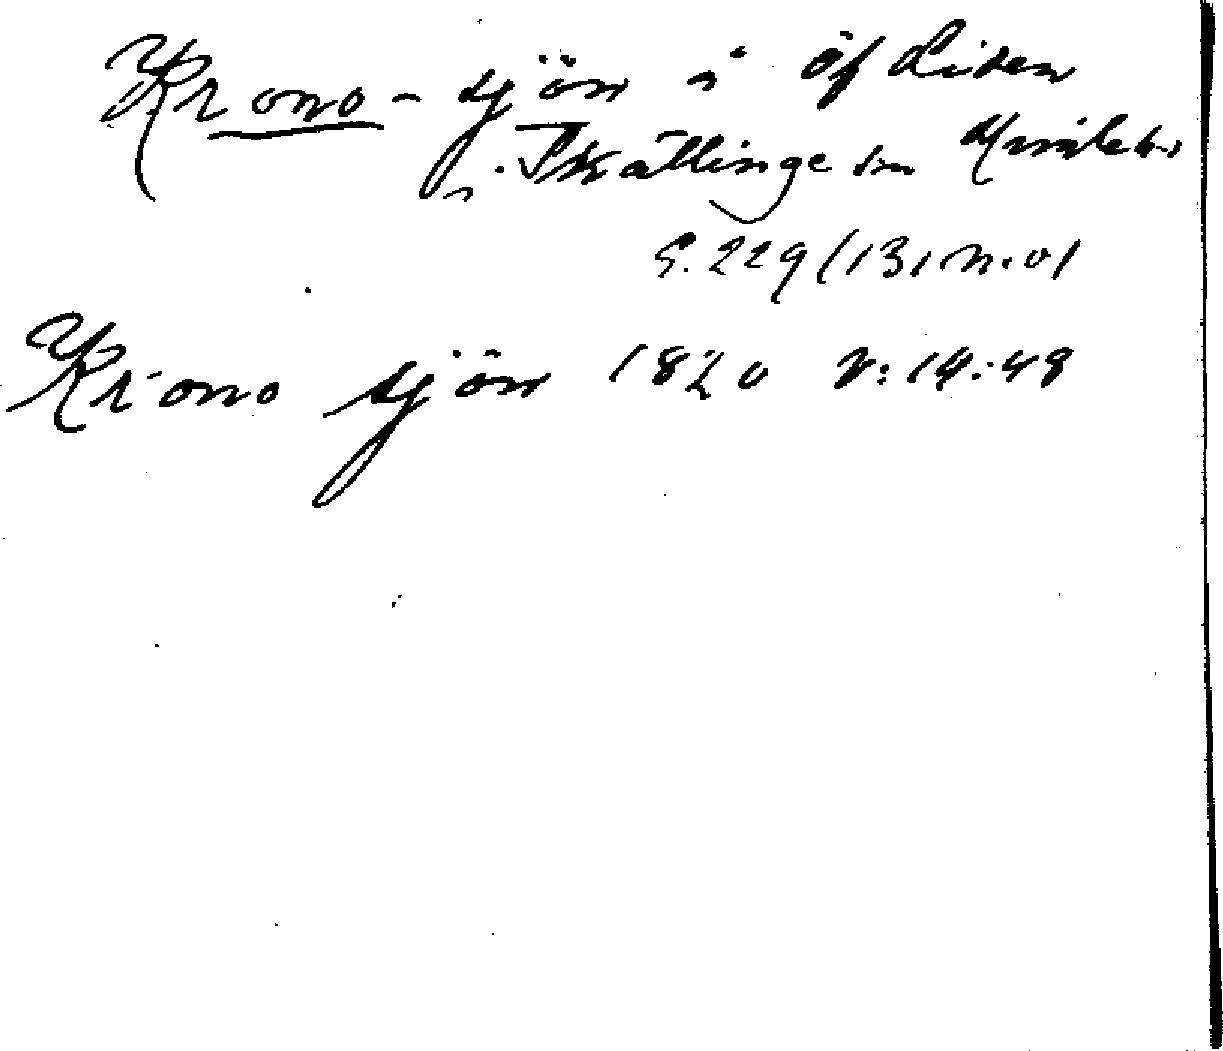 Krono-sjön i öf Liden
i Skällinge sn Himle hd
S. 229 (131 n.o)
Krono sjön 1820 V:14:48